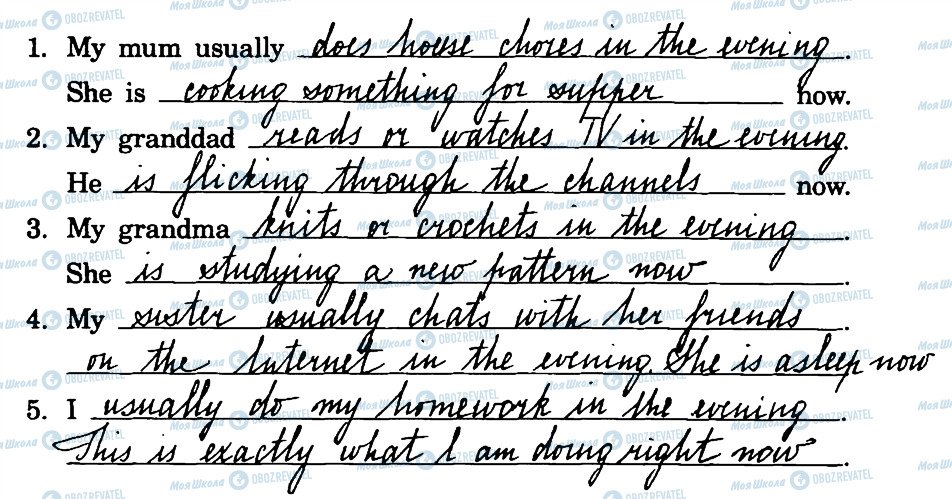 1. My mum usually does house chores in the evening.
She is cooking something for supper now.
2. My granddad reads or watches TV in the evening.
He is flicking through the channels now.
3. My grandma knits or crochets in the evening.
She is studying a new pattern now.
4. My sister usually chats with her friends.
on the Internet in the evening. She is asleep now
5. I usually do my homework in the evening.
This is exactly what I am doing right now.